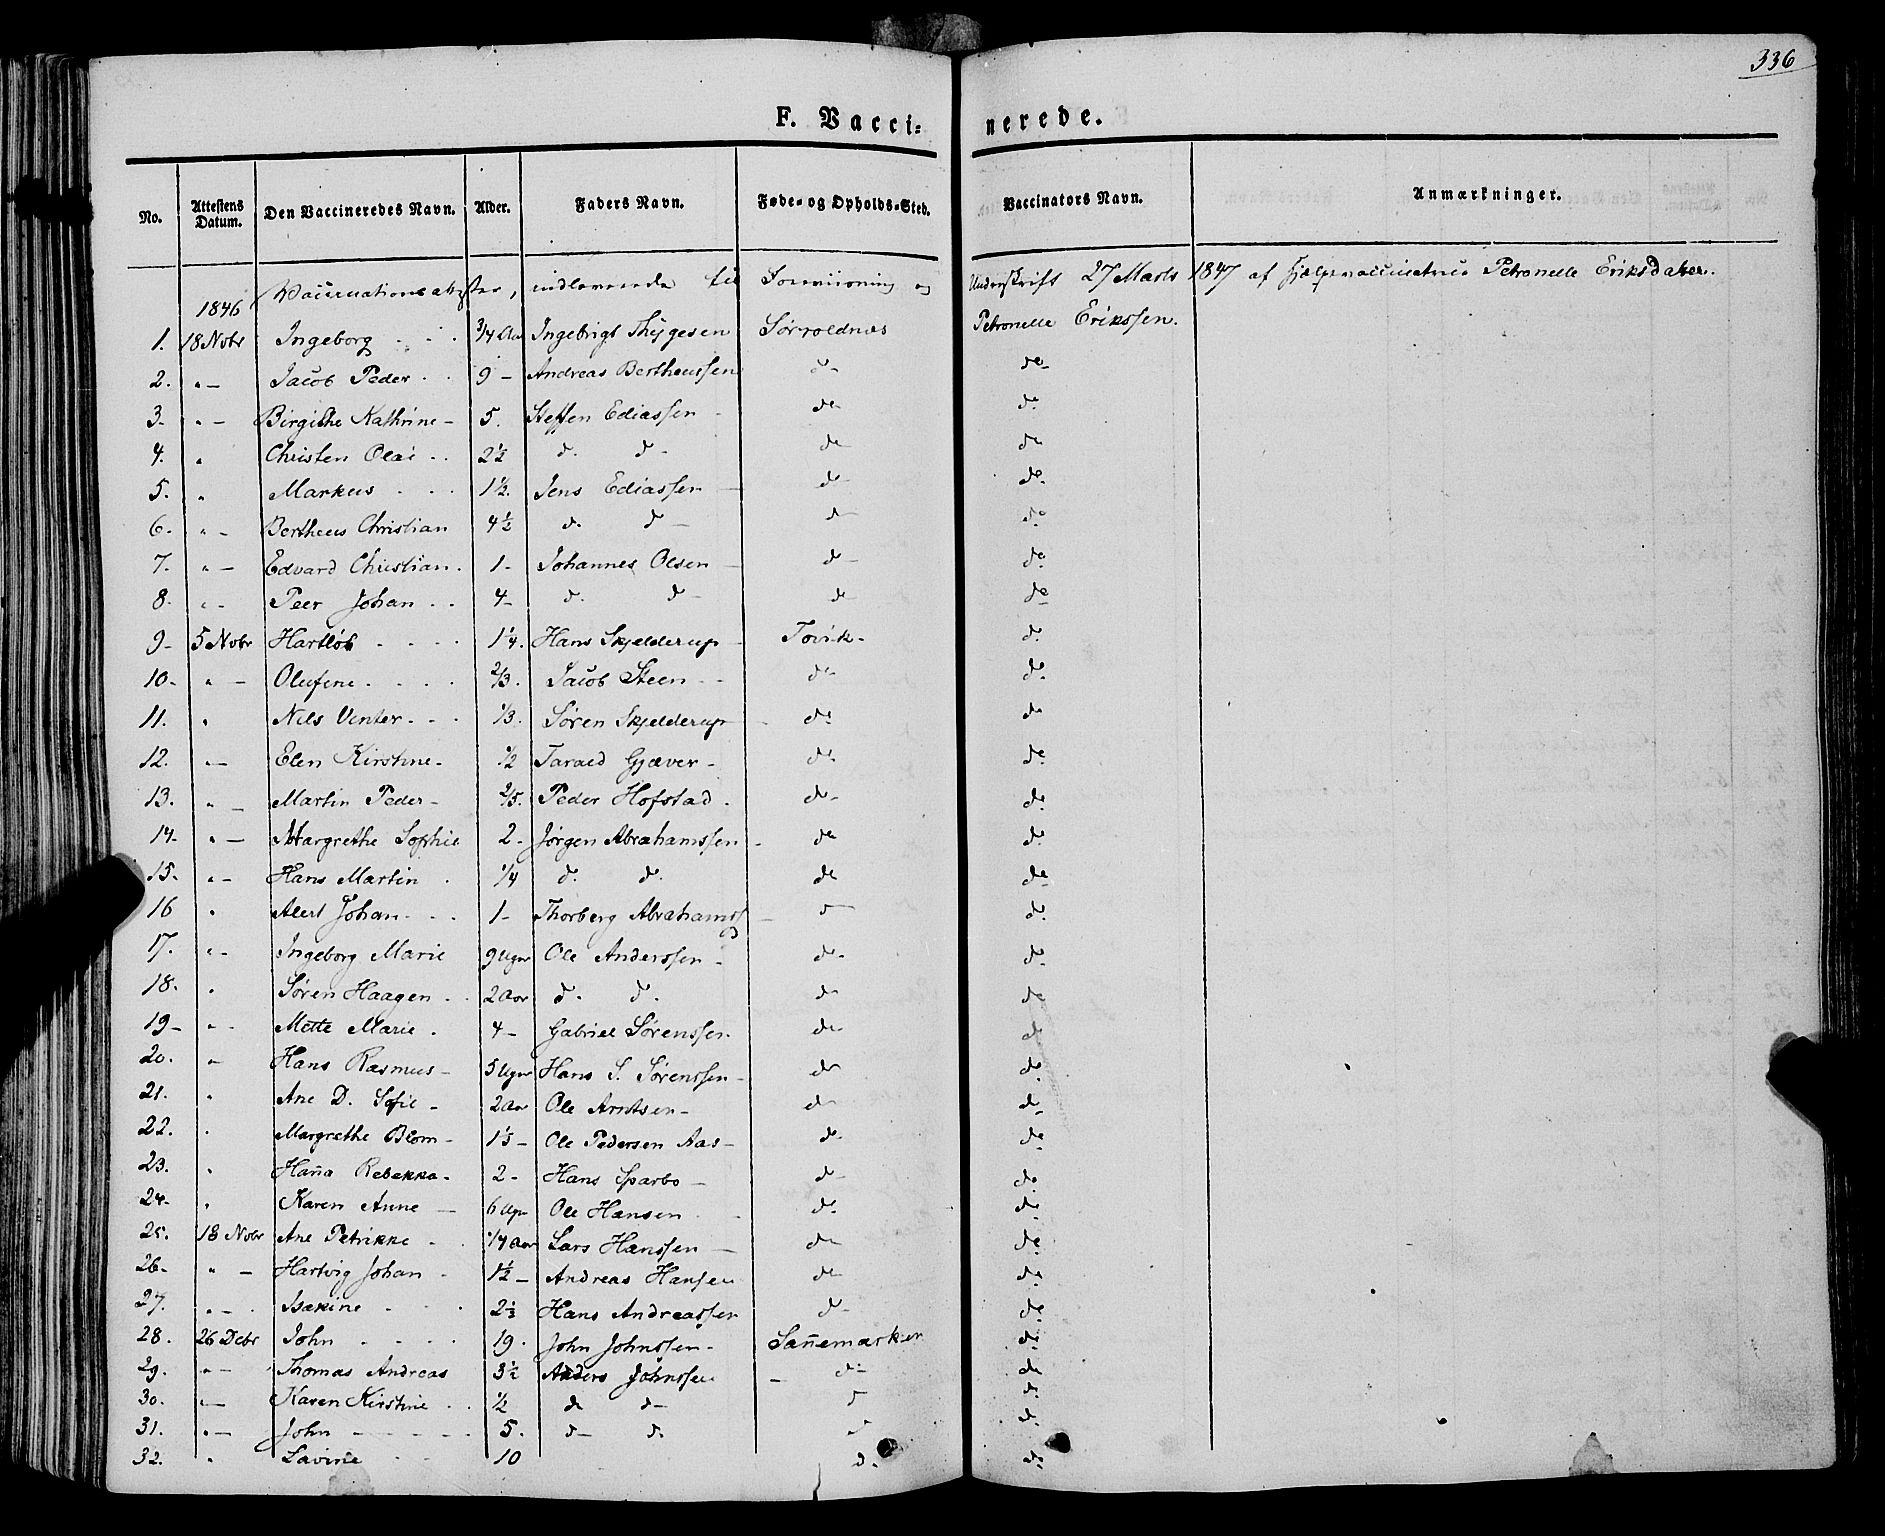 336
F. Vacci: nerede.
No. Attestens Datum. Den Vaccineredes Navn. Alder. Faders Navn. Føde- og Opholds-Sted. Vaccinators Navn. Anmærkninger.
Vaccinationsattester, indleverede til og Underskrift 27 Marts 1847 af Petronelle
1846
1. 18 Novbr Ingeborg 3/4 Aar Ingebrigt Thygesen Sørroldnæs Petronelle Erikssen.
2. " — Jacob Peder 9 — Andreas Bertheussen do do
3. " — Birgithe Kathrine 5. Steffen Ediassen do do
4. " Christen Olai 2½ d. d. do do
5. " Markus 1½. Jens Ediassen do do
6. " — Bertheus Christian 4½ d. d. d do
7. " — Edvard Christian. 1 - Johannes Olsen do do
8. " — Peer Johan 4 - d. d. do do
9 - 5 Novbr Hartløb 1¼. Hans Skjelderup Tovik do
10 - " — Olufine 2/3. Jacob Steen do do
11. " Nils Vinter 1/3. Søren Skjelderup do do
12. " — Elen Kirstine - ½ Tarald Gjæver - do do
13. " — Martin Peder - 2/5. Peder Hofstad. do do
14 - " — Margrethe Sophie 2 - Jørgen Abrahamssen do do
15. " — Hans Martin ¼ d. d. do do
16 " Alert Johan 1 - Thorberg Abrahamss d do
17. " — Ingeborg Marie 9 Uger Ole Anderssen do do
18. " Søren Haagen 2 Aar d. d. do do
19 - " — Mette Marie. 4 - Gabriel Sørenssen do do
20. " Hans Rasmus - 5 Uger Hans S. Sørenssen do do
21. " Ane D. Sofie - 2 Aar Ole Arntsen - do do
22. " Margrethe Blom - 1⅓ - Ole Pedersen Aas - do do
23. " Hana Rebekka - 2 - Hans Sparbo - do do
24 - " Karen Anne — 6 Ugr Ole Hansen do do
25. 18 Novbr Ane Petrikke ¼ Aar Lars Hanssen do do
26 - " — Hartvig Johan 1½ - Andreas Hansen do do
27. " — Isakine 2⅓ Hans Andreassen do do
28. 26 Decbr John 19. John Johnssen - Sanemarken do
29. " — Thomas Andreas 3½ Anders Johnssen do do
30. " — Karen Kirstine ½ d d d do
31. " — John 5. d d. d do
32. " Lavine 10 d. do